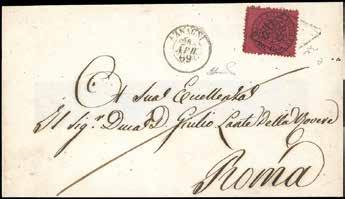 ANAGNI
APR
69
A Sua Eccellenza
Il Sigr. Duca D. Giulio Lante Della Rovere
Roma